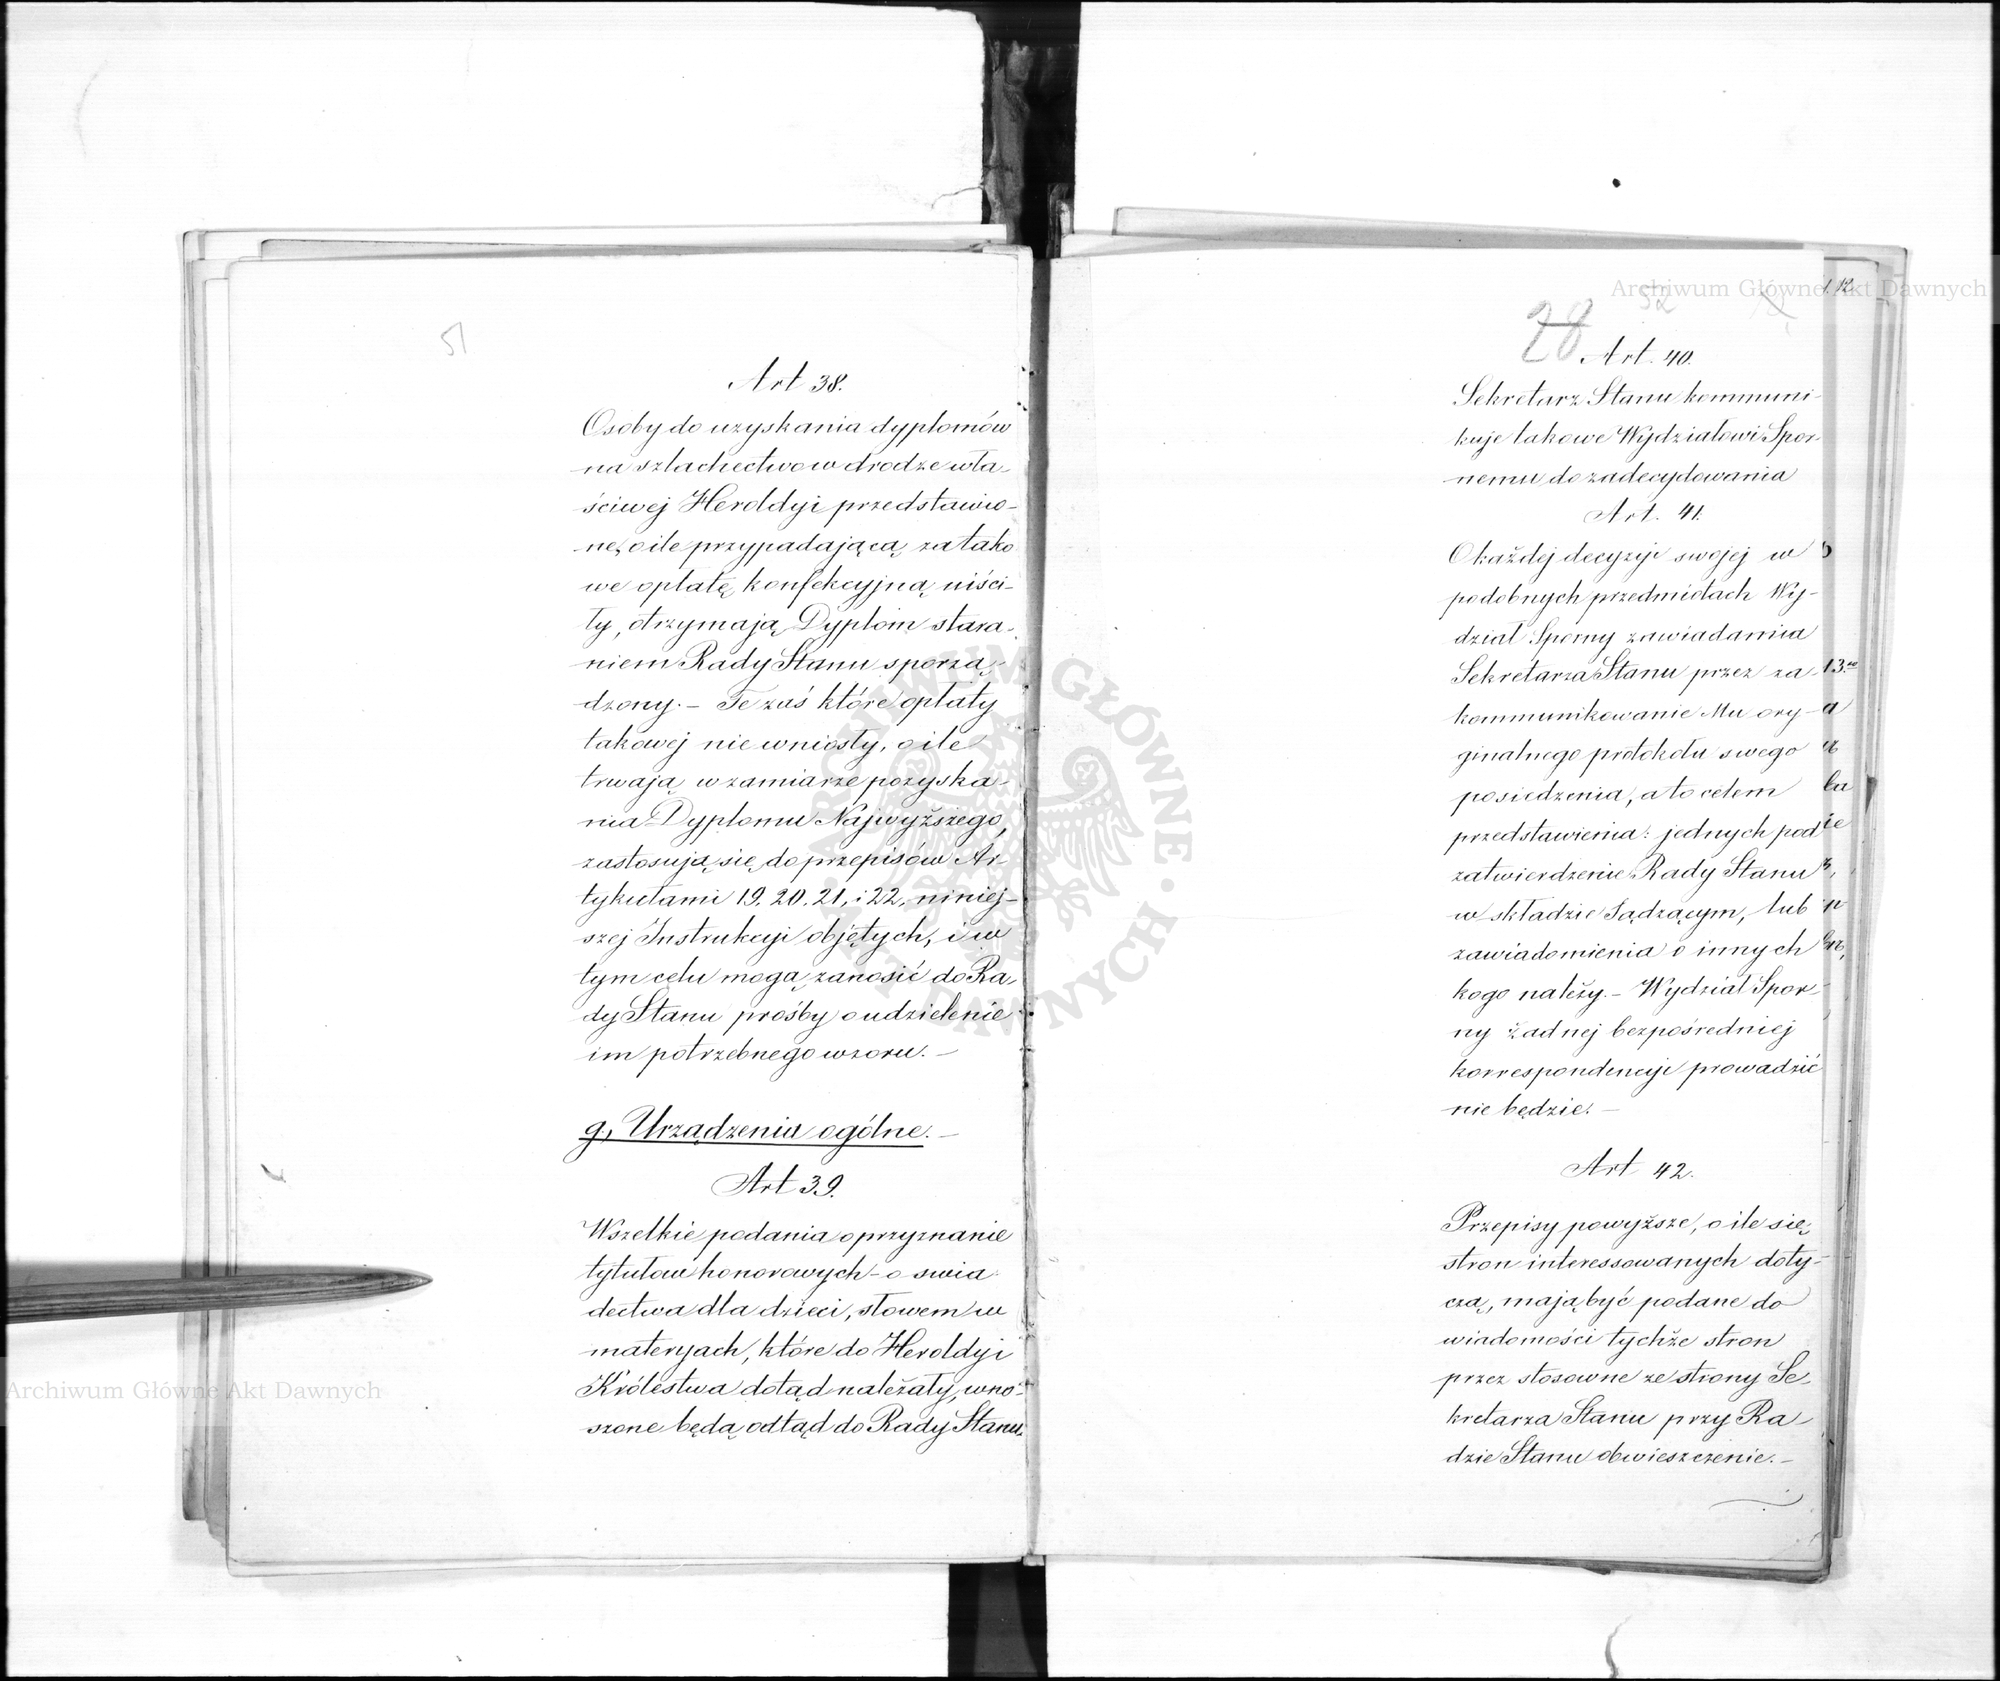 51
Art 38.
Osoby do uzyskania dyplomów
na szlachectwo w drodze wła-
ściwej Heroldyi przedstawio-
ne, o ile przypadającą za tako
we opłatę konfekcyjną uiści-
ły, otrzymają Dyplom stara-
niem Rady Stanu sporzą-
dzony. – Te zaś które opłaty
takowej nie wniosły, o ile
trwają w zamiarze pozyska-
nia Dyplomu Najwyższego,
zastosują się do przepisów Ar-
tykułami 19. 20. 21, i 22, niniej-
szej Instrukcyi objętych, i w
tym celu mogą zanosić do Ra-
dy Stanu prośby o udzielenie
im potrzebnego wzoru. –
g., Urządzenia ogólne. –
Art 39.
Wszelkie podania o przyznanie
tytułów honorowych – o swia-
dectwa dla dzieci, słowem w
materyach, które do Heroldyi
Królestwa dotąd należały, wno-
szone będą odtąd do Rady Stanu.
52
28
Art. 40.
Sekretarz Stanu kommuni-
kuje takowe Wydziałowi Spor-
nemu do zadecydowania
Art. 41.
O każdej decyzyi swojej w
podobnych przedmiotach Wy-
dział Sporny zawiadamia
Sekretarza Stanu przez za-
kommunikowanie Mu ory-
ginalnego protokółu swego
posiedzenia, a to celem
przedstawienia: jednych pod
zatwierdzenie Rady Stanu
w składzie Sądzącym, lub
zawiadomienia o innych
kogo należy. – Wydział Spor-
ny żadnej bezpośredniej
korrespondencyi prowadzić
nie będzie. –
Art. 42.
Przepisy powyższe, o ile się
stron interessowanych doty-
czą, mają być podane do
wiadomości tychże stron
przez stosowne ze strony Se-
kretarza Stanu przy Ra-
dzie Stanu obwieszczenie. –
Archiwum Główne Akt Dawnych
Archiwum Główne Akt Dawnych
ARCHIWUM GŁÓWNE AKT DAWNYCH